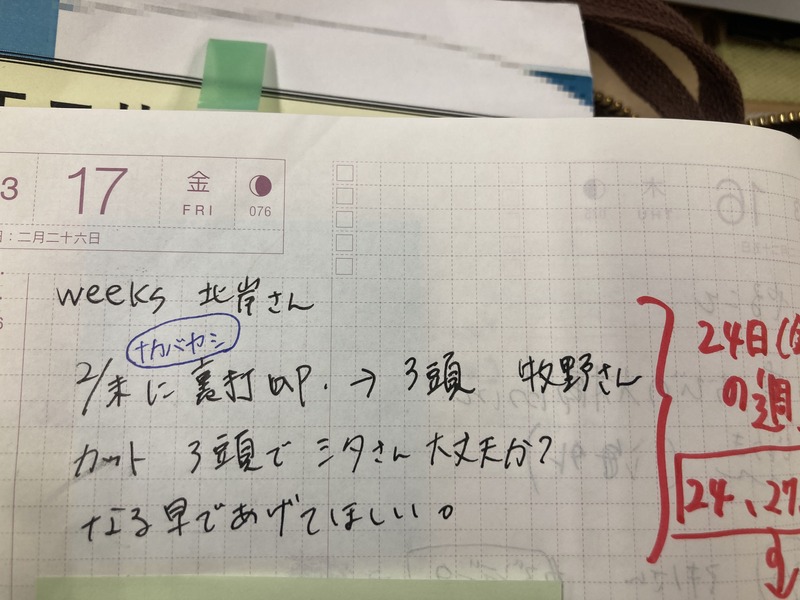 3
17
金
FRI
076
:二月二十六日
weeks 北岸さん
ナカバヤシ
2/末に裏打UP. → 3頭 牧野さん
カット 3頭で ミタさん 大丈夫か?
なる早であげてほしい。
24日(金
の週
24、27
16
木
THU